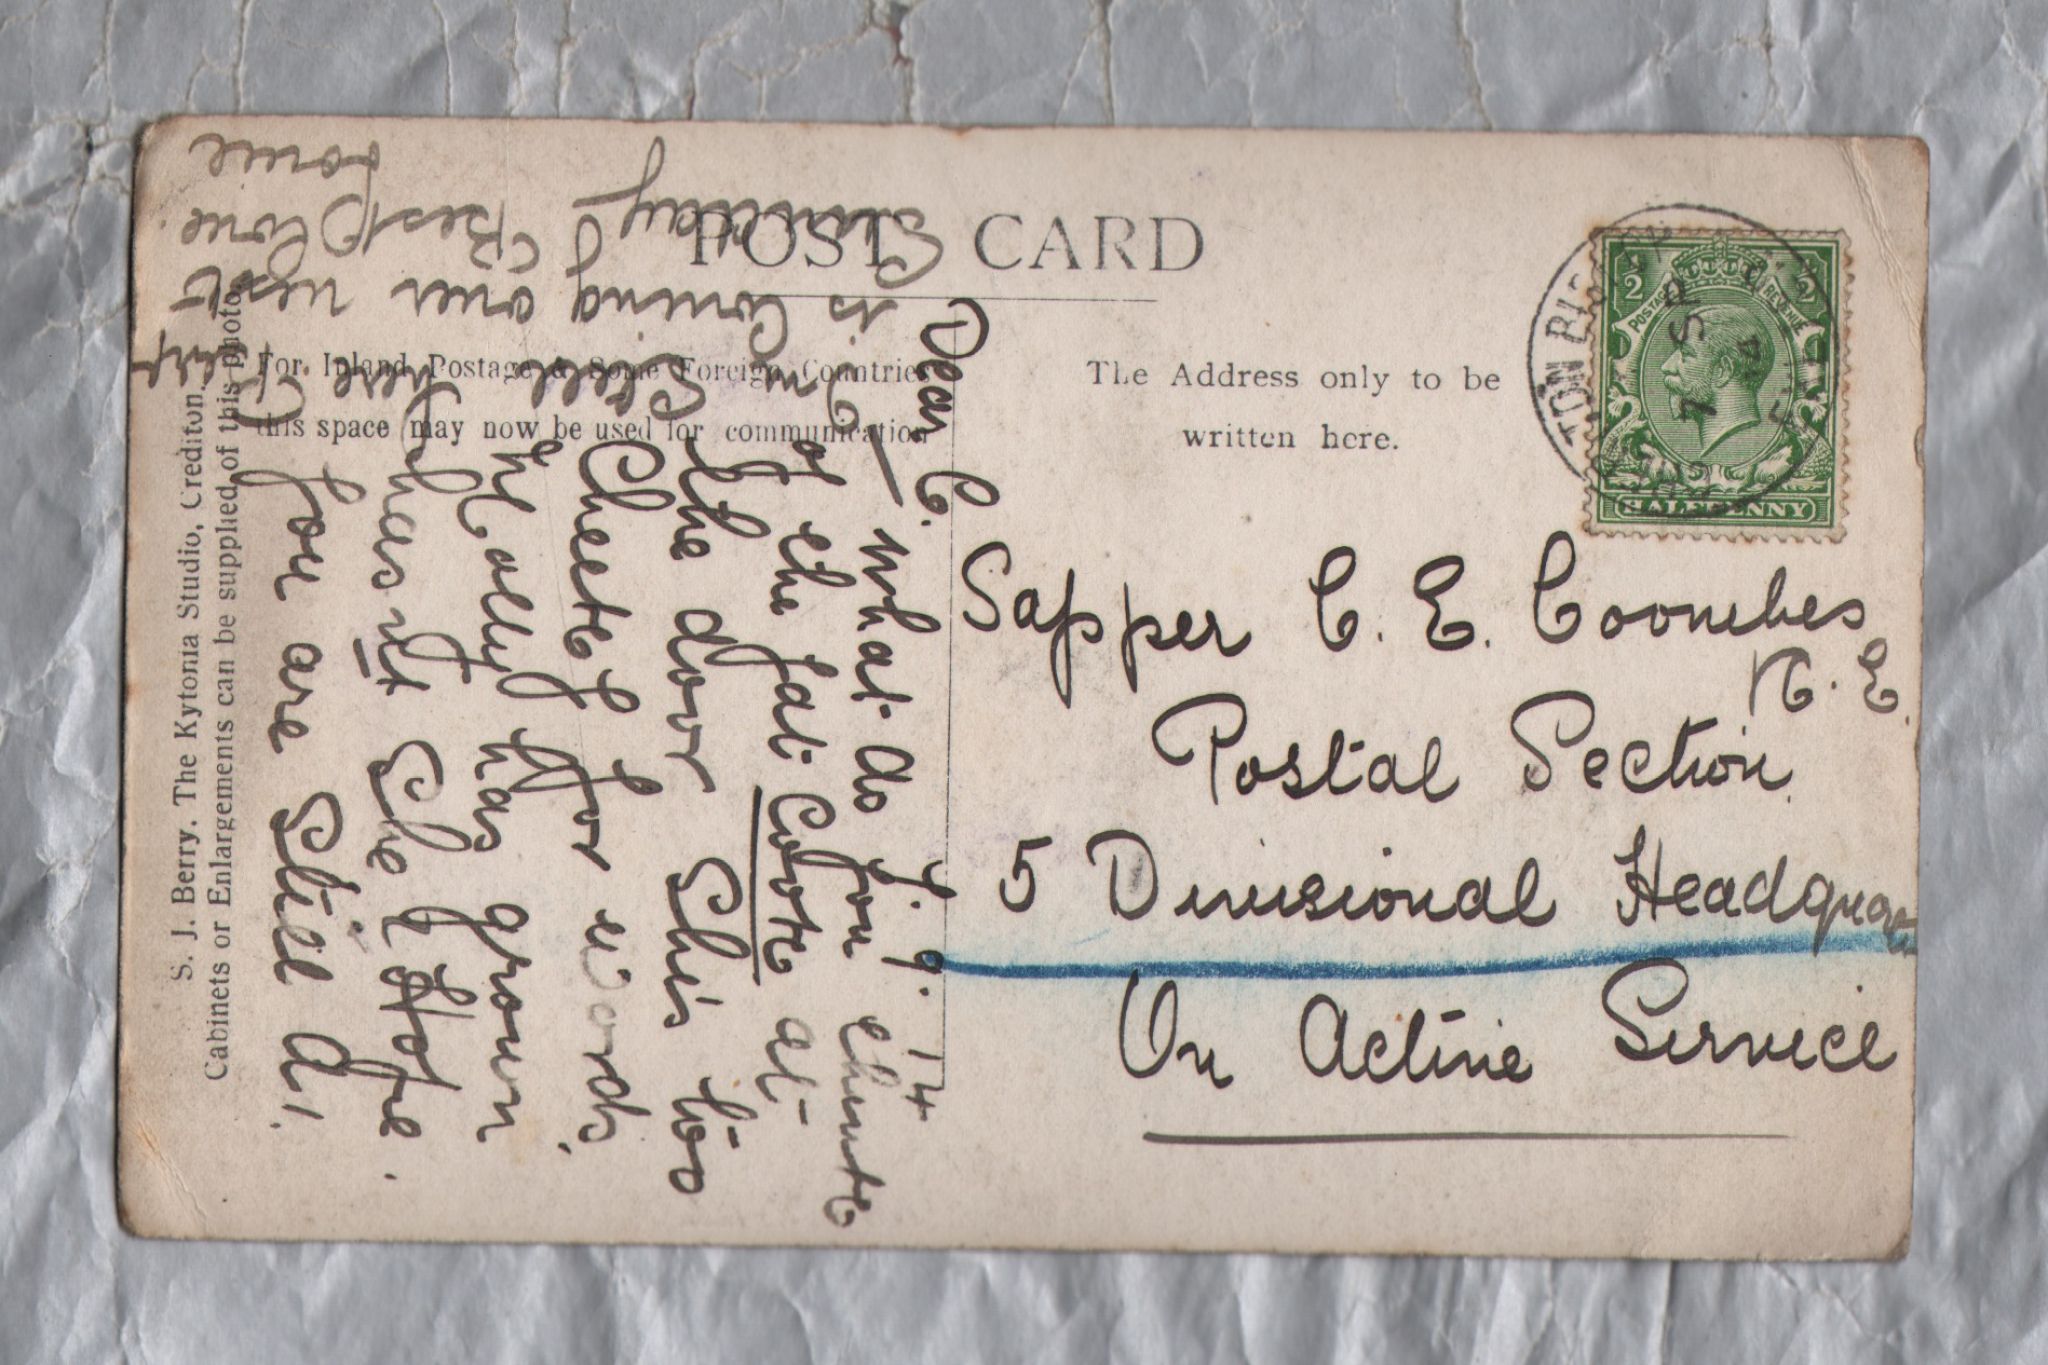 POST CARD
For Inland Postage & Some Foreign Countries
this space may now be used for communication
The Address only to be
written here.
S. J. Berry, The Kytonia Studio, Crediton.
Cabinets or Enlargements can be supplied of this photo.
½ ½
POSTAGE REVENUE
HALFPENNY
7 SP
14
Sapper C. E. Coombes
R. E.
Postal Section
5 Divisional Headquar
On Active Service
7. 9. 14
Dear C.
— what do you
of the fat at
the door She's too
Cheeky for words.
Molly has grown
hasn't she? Hope
you are still A1.
I'm still here
is coming over next
Best Love.